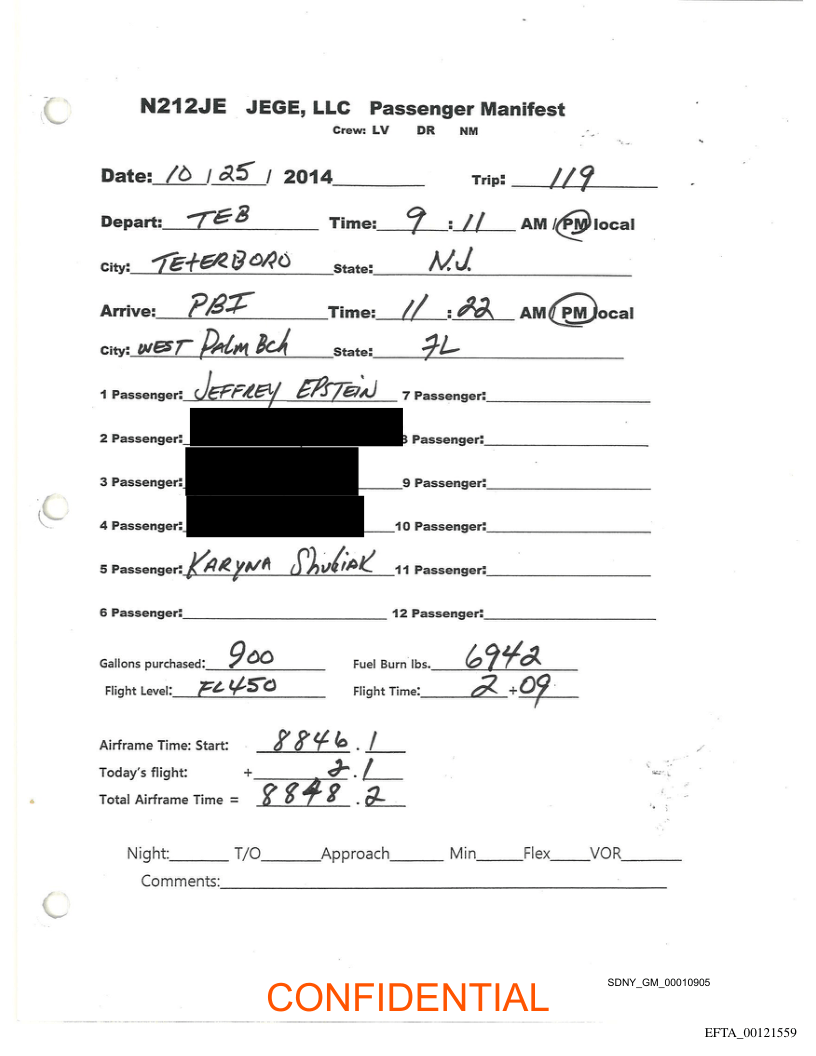 N212JE JEGE, LLC Passenger Manifest
Crew: LV DR NM
Date: 10 / 25 / 2014 Trip: 119
Depart: TEB Time: 9 : 11 AM / PM local
City: TETERBORO State: N.J.
Arrive: PBI Time: 11 : 22 AM / PM local
City: WEST PALM BCH State: FL
1 Passenger: JEFFREY EPSTEIN 7 Passenger:
2 Passenger: 8 Passenger:
3 Passenger: 9 Passenger:
4 Passenger: 10 Passenger:
5 Passenger: KARYNA SHULIAK 11 Passenger:
6 Passenger: 12 Passenger:
Gallons purchased: 900 Fuel Burn lbs. 6942
Flight Level: FL450 Flight Time: 2 + 09
Airframe Time: Start: 8846 . 1
Today's flight: + 2 . 1
Total Airframe Time = 8848 . 2
Night: T/O Approach Min Flex VOR
Comments:
SDNY_GM_00010905
CONFIDENTIAL
EFTA_00121559